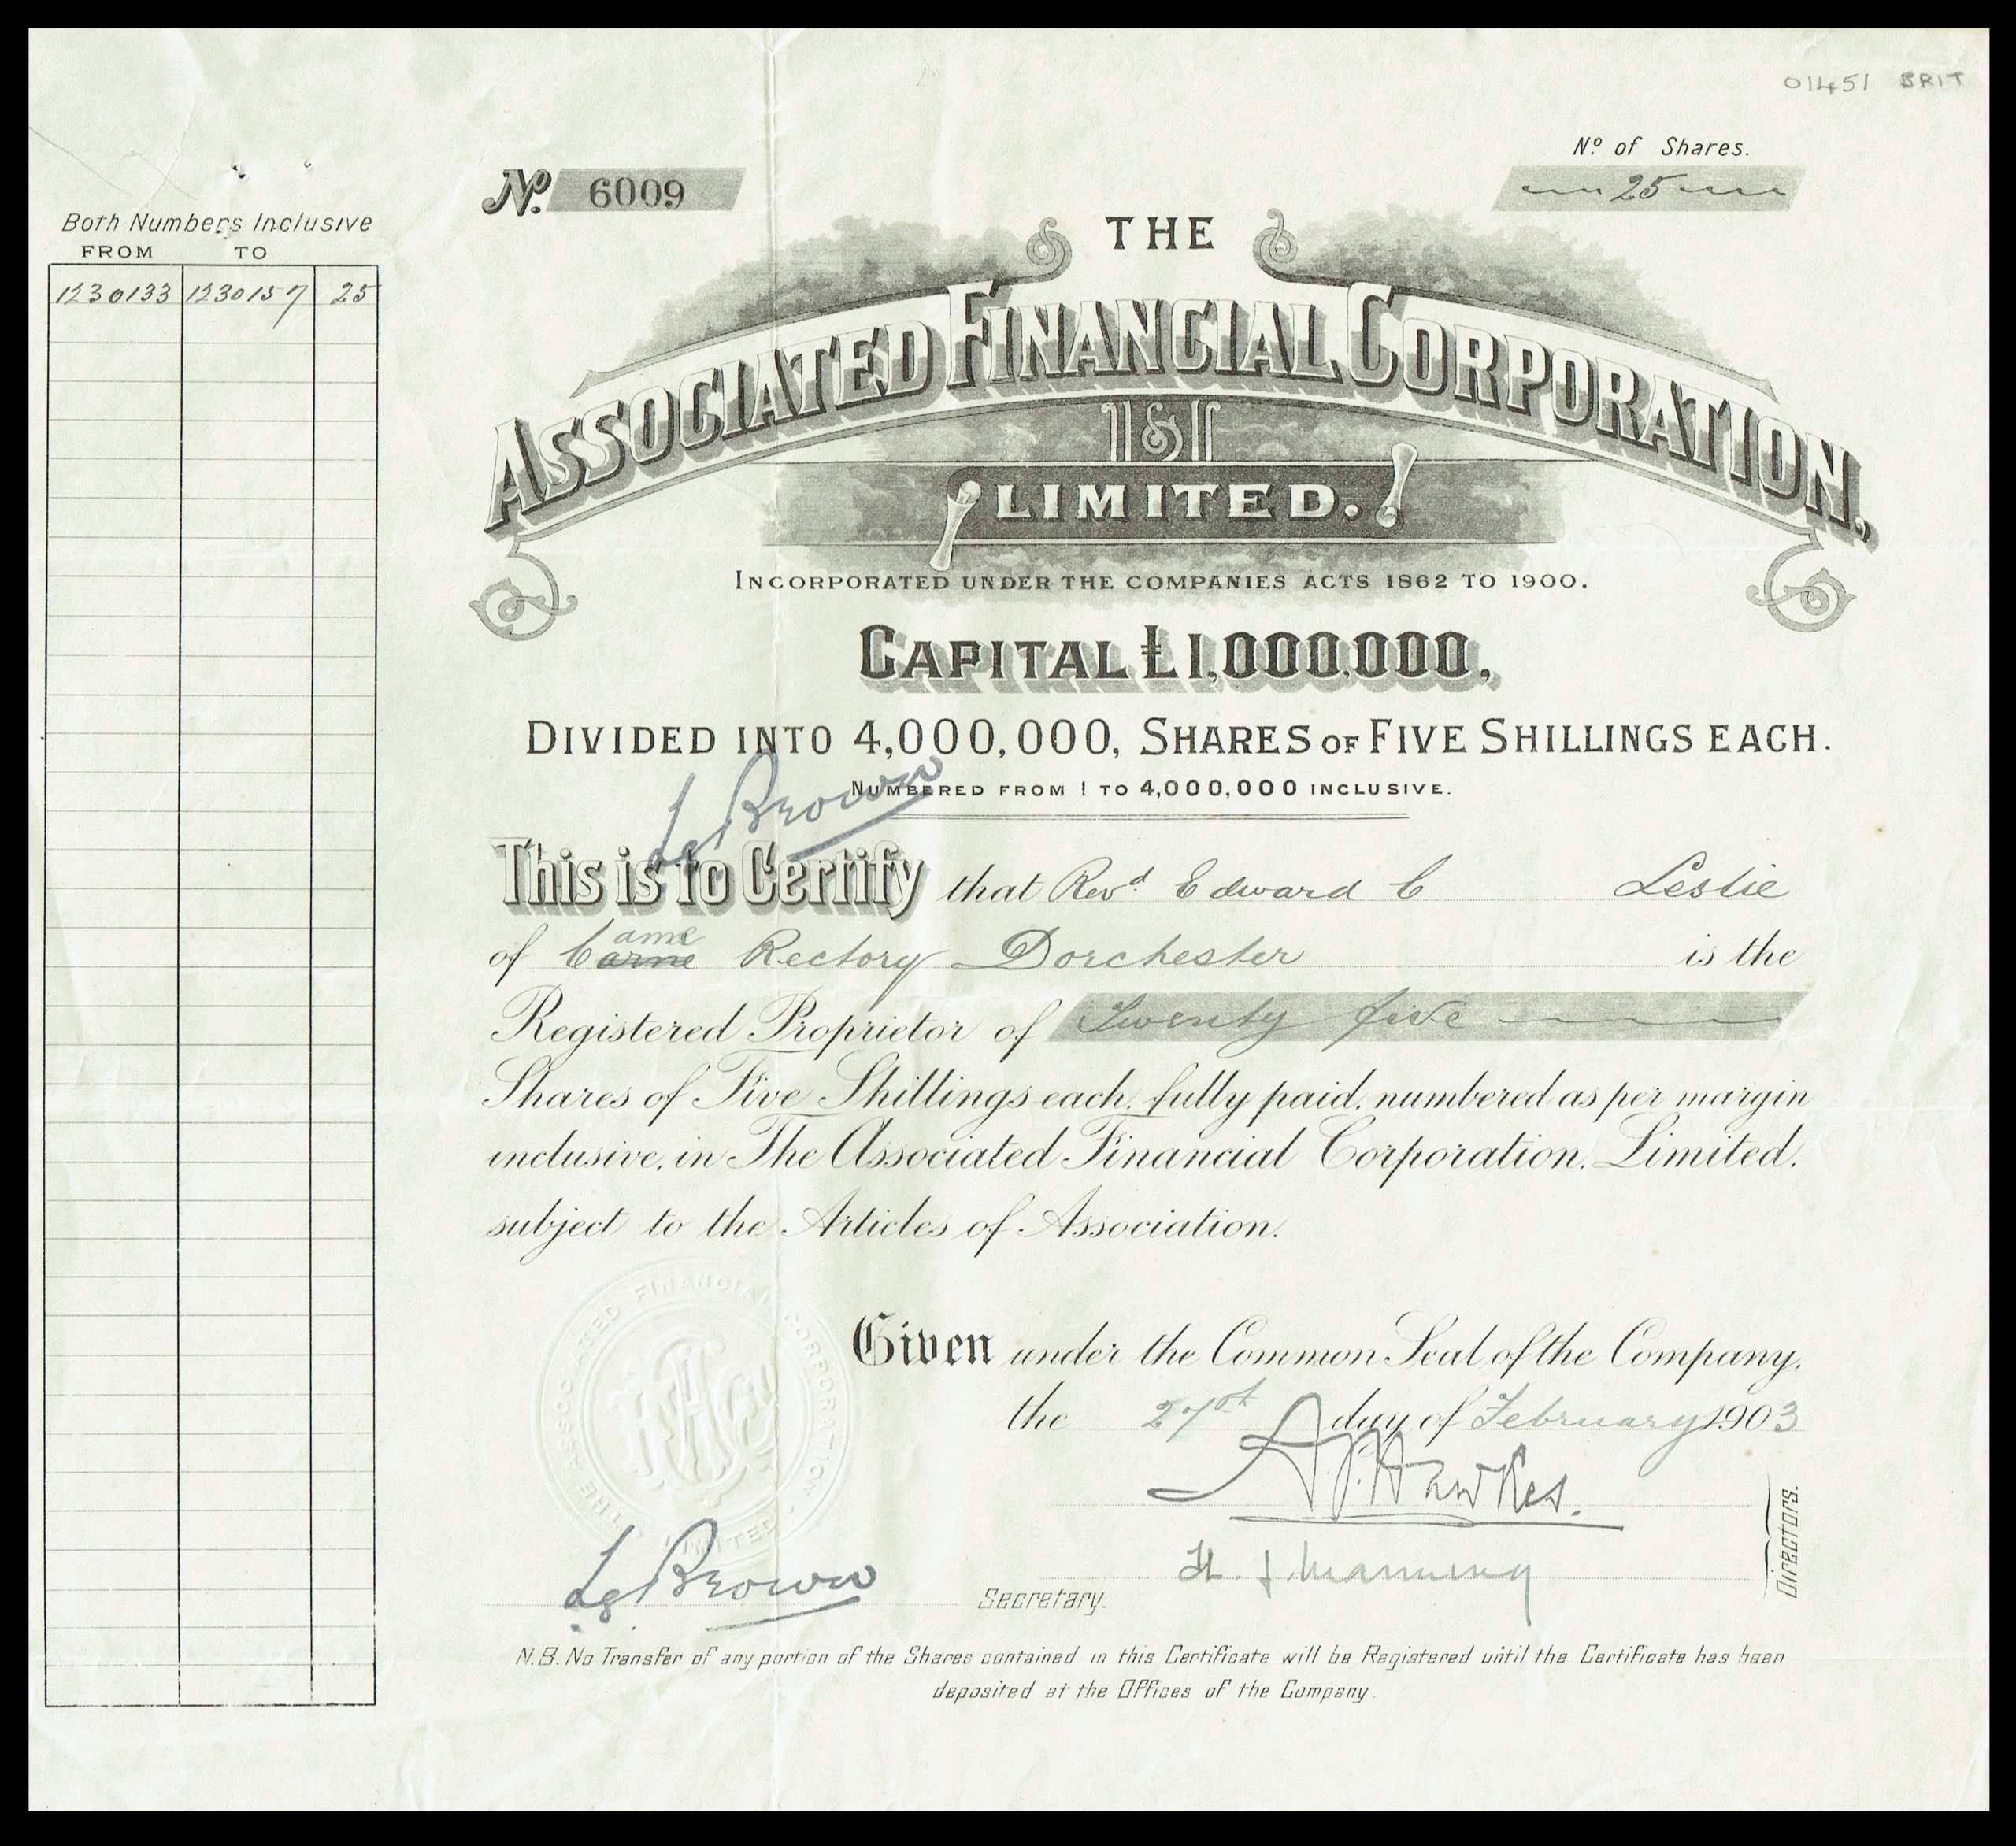 011451 BRIT
Nº of Shares.
Nº. 6009
25
Both Numbers Inclusive
FROM TO
1230133 1230157 25
THE
ASSOCIATED FINANCIAL CORPORATION,
LIMITED.
INCORPORATED UNDER THE COMPANIES ACTS 1862 TO 1900.
CAPITAL £1,000,000,
DIVIDED INTO 4,000,000, SHARES OF FIVE SHILLINGS EACH.
NUMBERED FROM 1 TO 4,000,000 INCLUSIVE.
Brown
This is to Certify that Revd. Edward C Leslie
ame
of Carne Rectory Dorchester is the
Registered Proprietor of Twenty five
Shares of Five Shillings each, fully paid, numbered as per margin
inclusive, in The Associated Financial Corporation, Limited,
subject to the Articles of Association.
THE ASSOCIATED FINANCIAL CORPORATION LIMITED
Given under the Common Seal of the Company,
the 27th day of February 1903
A.P. Hawkes.
Directors.
Manning
Brown
Secretary.
N.B. No Transfer of any portion of the Shares contained in this Certificate will be Registered until the Certificate has been
deposited at the Offices of the Company.